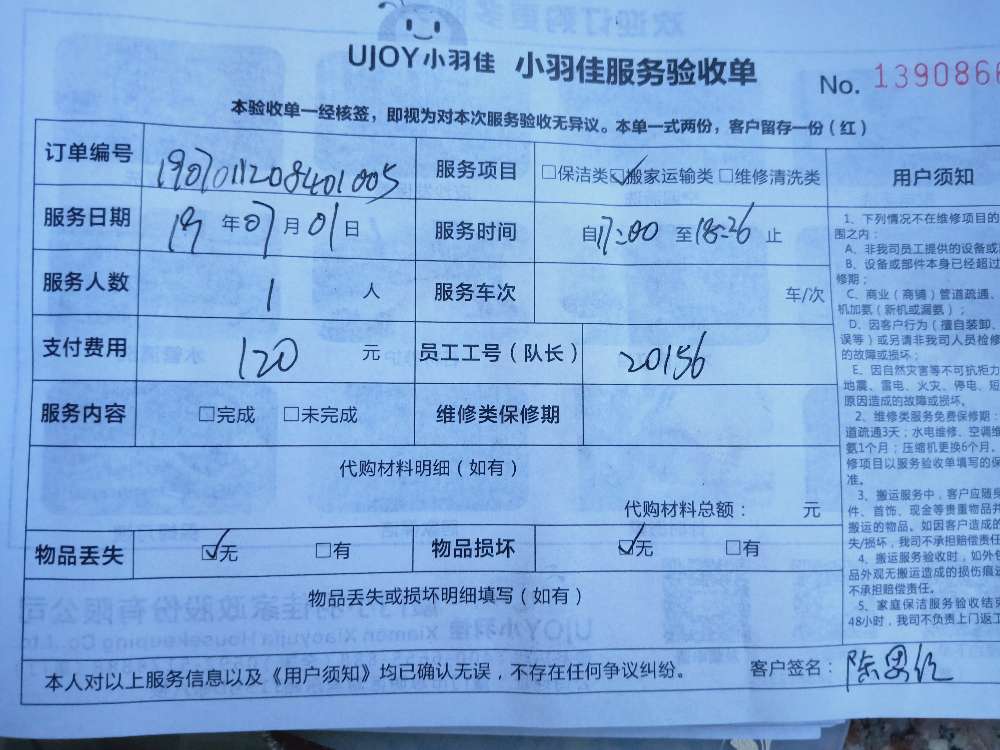 UJOY小羽佳 小羽佳服务验收单
No. 1390866
本验收单一经核签，即视为对本次服务验收无异议。本单一式两份，客户留存一份（红）
订单编号 1907011208401005 服务项目 □保洁类☑搬家运输类□维修清洗类
服务日期 19年07月01日 服务时间 自17:00 至18:26 止
服务人数 1 人 服务车次 车/次
支付费用 120 元 员工工号（队长） 20156
服务内容 □完成 □未完成 维修类保修期
代购材料明细（如有）
代购材料总额： 元
物品丢失 ☑无 □有 物品损坏 ☑无 □有
物品丢失或损坏明细填写（如有）
本人对以上服务信息以及《用户须知》均已确认无误，不存在任何争议纠纷。 客户签名：陈
用户须知
1、下列情况不在维修项目的
围之内：
A、非我司员工提供的设备或
B、设备或部件本身已经超过
修期；
C、商业（商铺）管道疏通、
机加氨（新机或漏氨）；
D、因客户行为（擅自装卸、
误等）或另请非我司人员检修
的故障或损坏；
E、因自然灾害等不可抗拒力
地震、雷电、火灾、停电、短
原因造成的故障或损坏。
2、维修类服务免费保修期：
道疏通3天；水电维修、空调维
氨1个月；压缩机更换6个月。
修项目以服务验收单填写的保
准。
3、搬运服务中，客户应随身
件、首饰、现金等贵重物品并
搬运的物品。如因客户造成的
失/损坏，我司不承担赔偿责任
4、搬运服务验收时，如外包
品外观无搬运造成的损伤痕迹
不承担赔偿责任。
5、家庭保洁服务验收结束
48小时，我司不负责上门返工